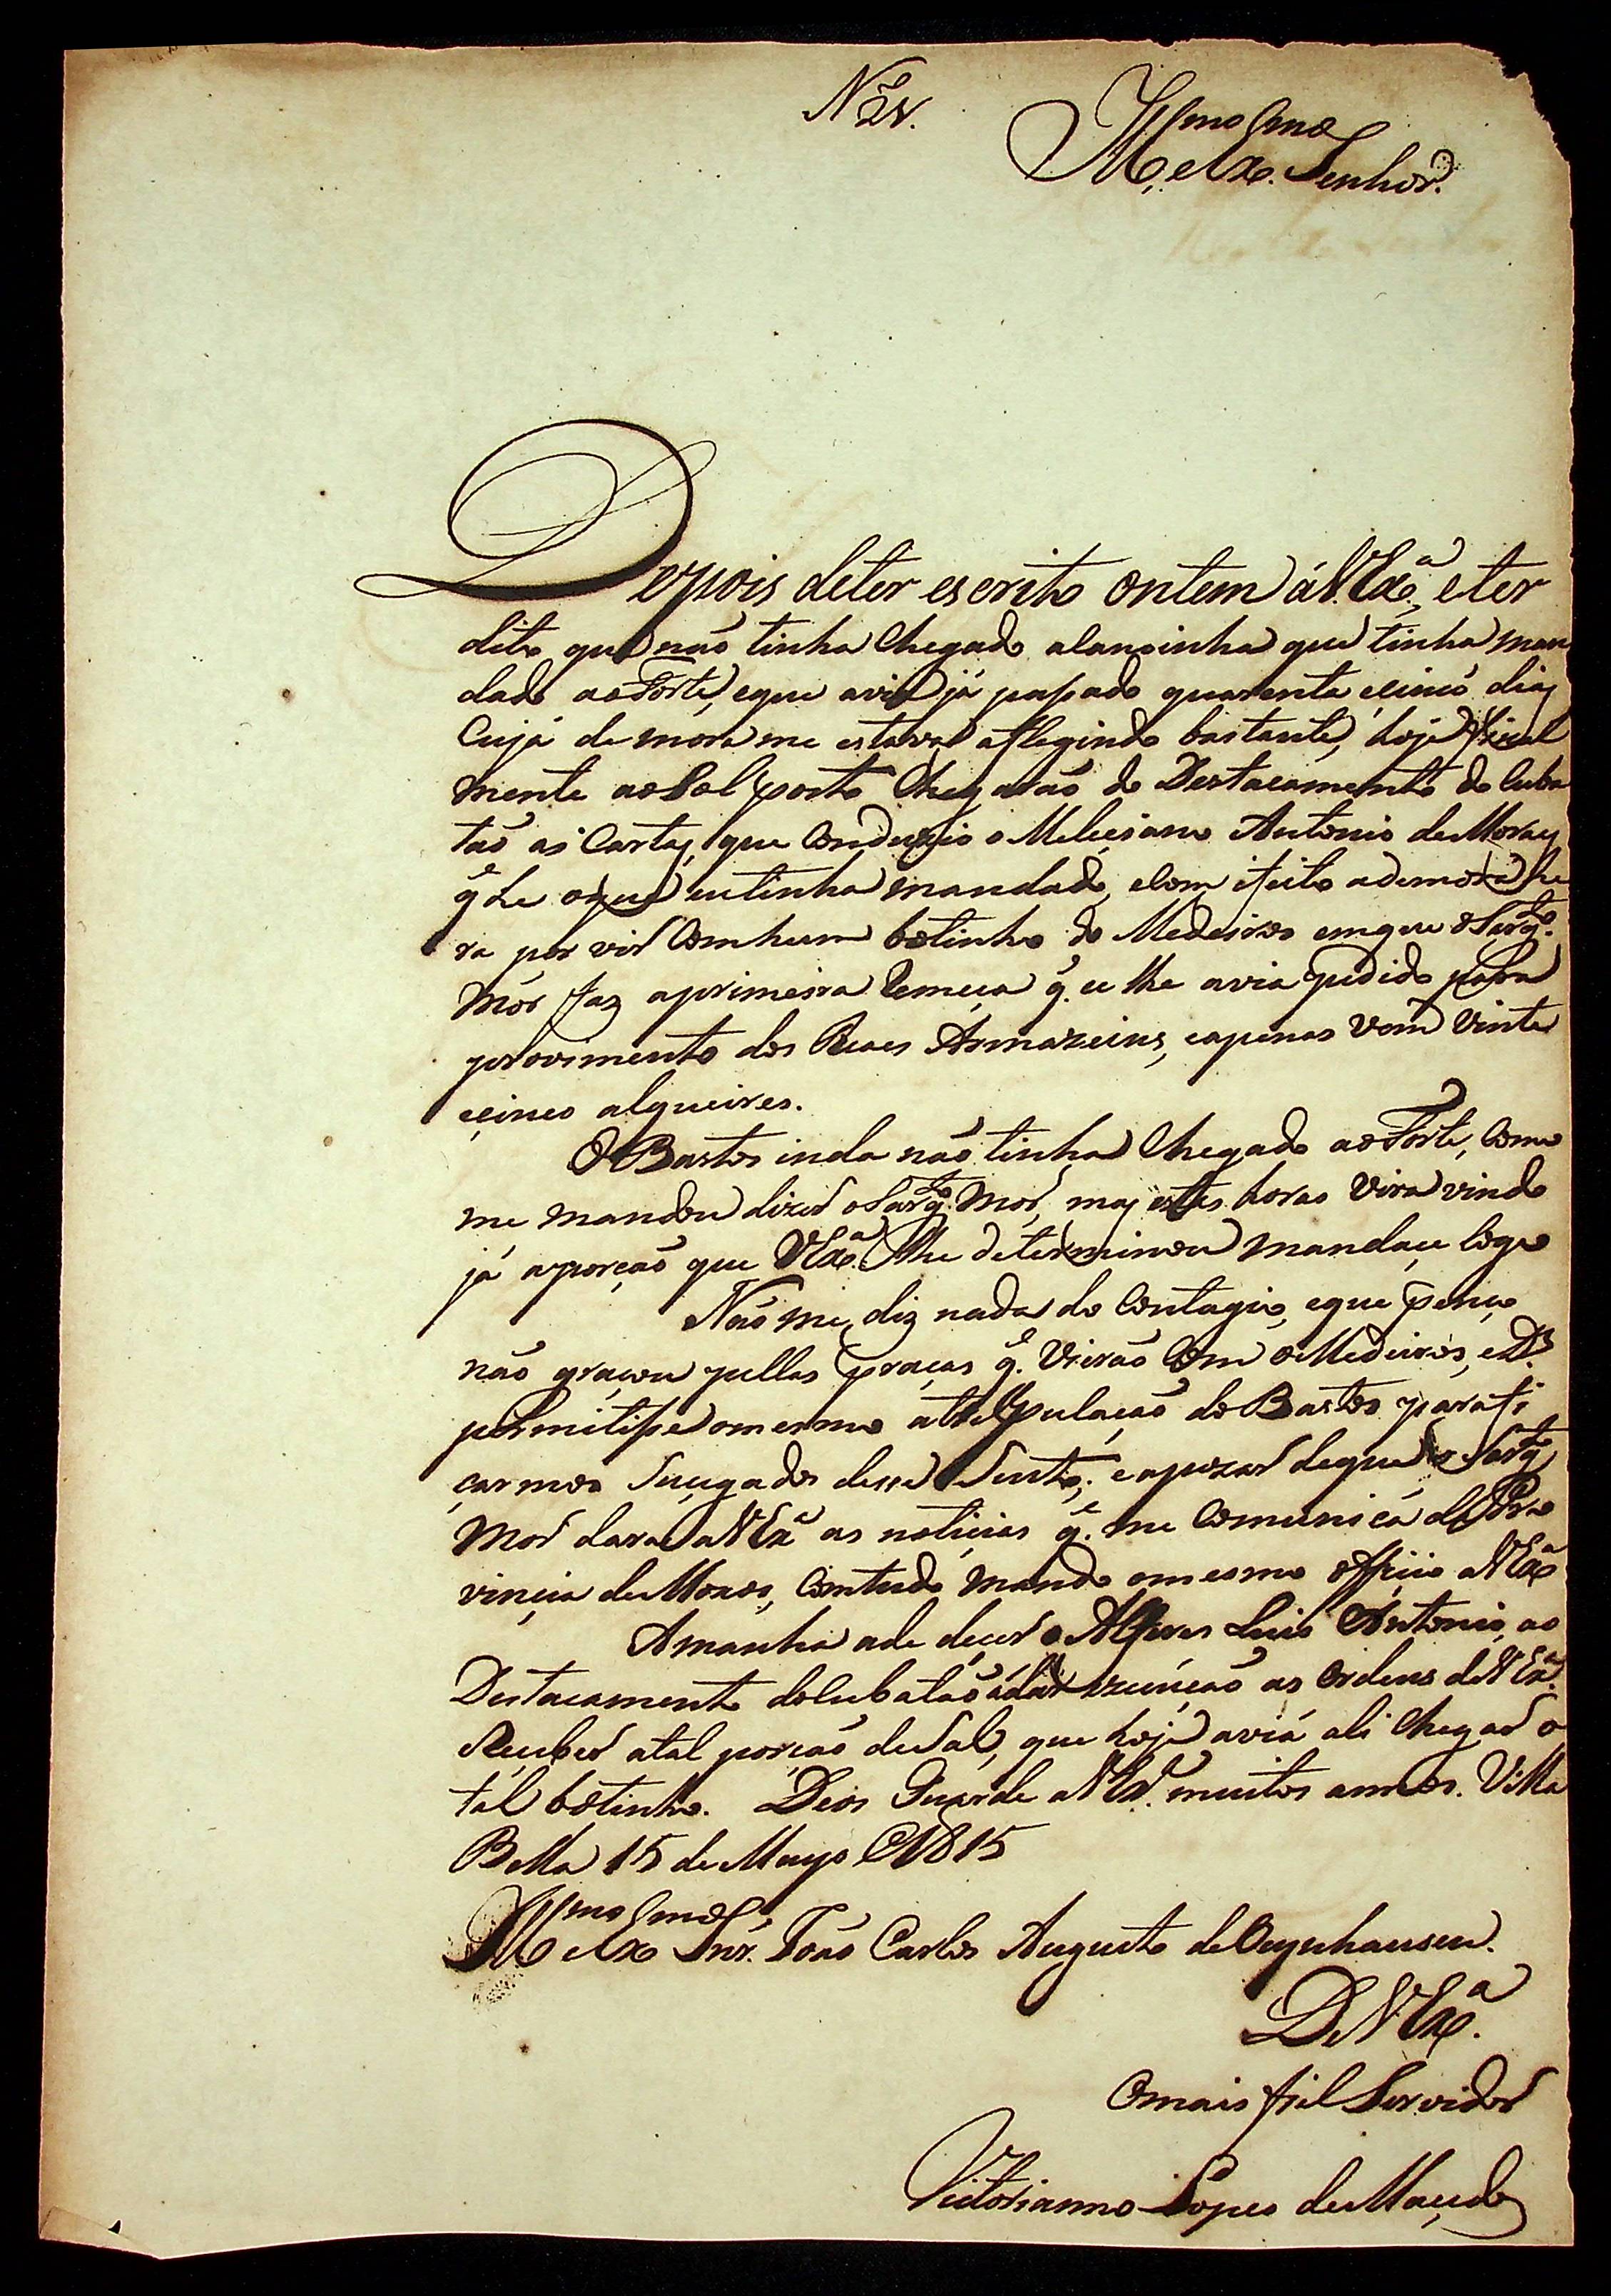 Nº 28.
Illmo e Exmo Senhor.
Depois deter escrito ontem áVExª, eter
dito que não tinha Chegado alanxinha que tinha man
dado aoForte, eque avia já passado quarenta ecinco dias
Cuja demora me estava aflegindo bastante, hoje final
mente aoSol posto Chegarão do Destacamento do Cuba
tão as Cartas, que Conduzio o Meleçiano Antonio deMoraes
q̃ he oque eutinha mandado, eCom efeito ademora he
ra por vir Comhum botinho do Medeiros emque oSargto
Mór faz aprimeira Remeça q̃. eu lhe avia pedido para
provimento dos Reaes Armazeins, eapenas Vem Vinte
eçinco alqueires.
OBastos inda não tinha Chegado aoForte, Como
me mandou dizer oSargto Mór, mas estas horas Virá vindo
já aporção que VExª. lhe determinou mandaçe logo
Não me diz nada do Contagio, eque penço
não graçou pellas praças q̃. Vierão Com oMedeiros, eDs
permitisse omesmo átrepulação do Bastos parafi
carmos Suçegados desse Susto; eapezar deque o Sargto
Mór dara aVExª as notiçias q̃. me Comunica daPro
vinçia deMoxos, Comtudo mando omesmo offiçio aVExª
Amanhã ade deçer o Alferes Luis Antonio, ao
Destacamento doCubatão ádar ezecução as Ordens deVExª.
Reçeber atal porção deSal, que hoje aviá ali Chegar o
tal botinho. Deos Guarde aVExª. muitos annos. Villa
Bella 15 de Mayo 1815
Illmo e Exmo Snr. João Carlos Augusto deOeynhausen.
DeVExª.
Omais fiel Servidor
Victorianno Lopes deMaçedo